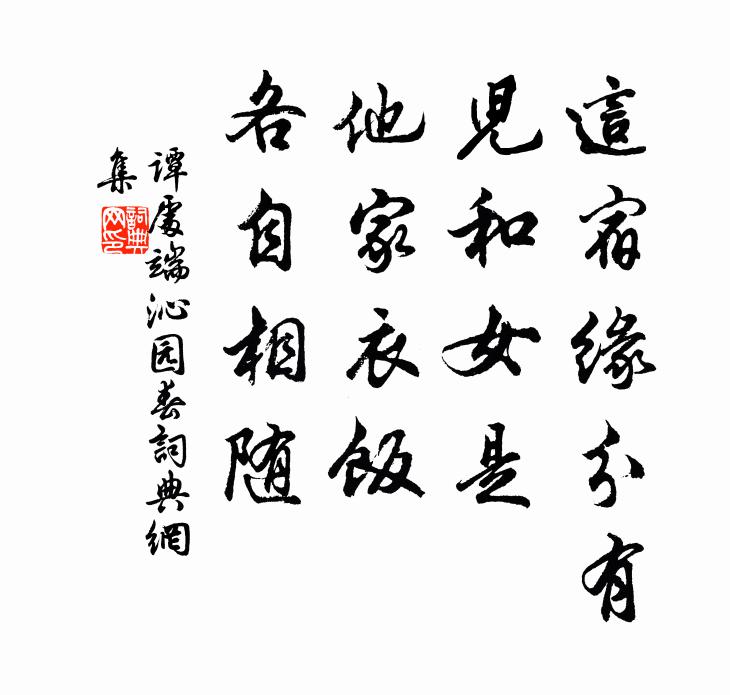 這宿緣分有
兒和女是
他家衣飯
各自相随
谭處端沁园春詞典網
集
詞典
网印